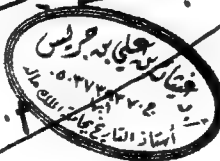 د. غيثان بن علي بن جريس
أبها
أستاذ التاريخ بجامعة الملك خالد